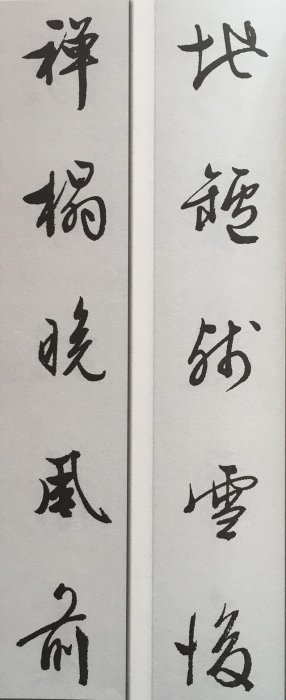 地鑪殘雪後
禪榻晚風前